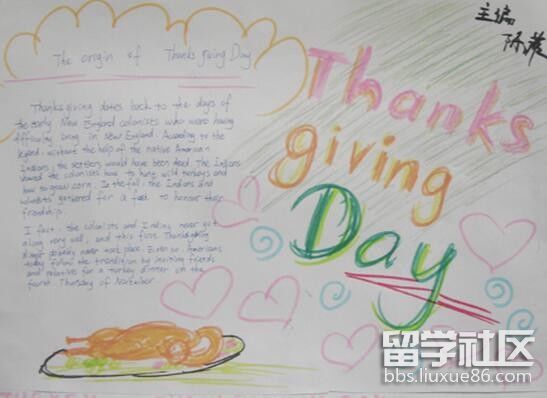 主编
The origin of Thanksgiving Day
Thanks
giving
Day
Thanksgiving dates back to the days of
the early New England colonists who were having
difficulty living in New England. According to the
legend, without the help of the native American
Indians, the settlers would have been dead. The Indians
showed the colonists how to hunt wild turkeys and
how to grow corn. In the fall, the Indians and
colonists gathered for a feast to honour their
friendship.
I fact, the colonists and Indians never got
along very well, and this first Thanksgiving
never took place. Even so, Americans
today follow the tradition by inviting friends
and relatives for a turkey dinner on the
fourth Thursday of November.
留学社区
bbs.liuxue86.com